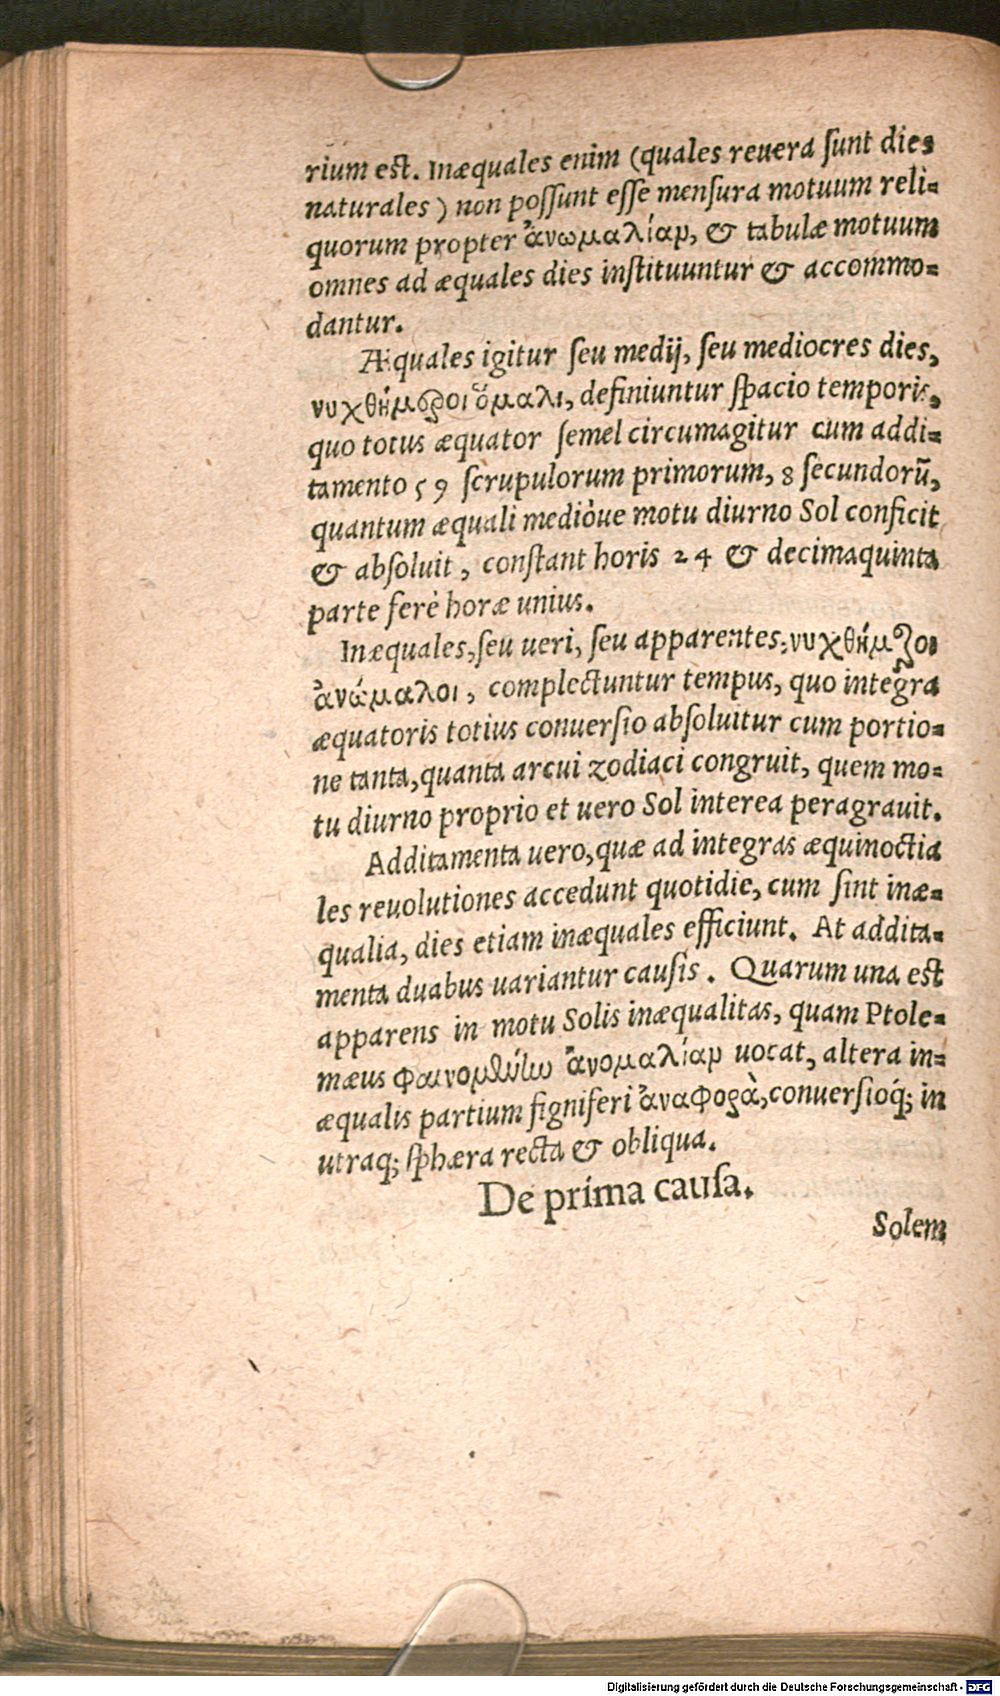 rium est. Inæquales enim (quales reuera ſunt dies
naturales) non poſſunt eſſe menſura motuum reli-
quorum propter ἀνωμαλίαν, & tabulæ motuum
omnes ad æquales dies inſtituuntur & accommo-
dantur.
Æquales igitur ſeu medij, ſeu mediocres dies,
νυχθήμεροι ὁμαλοι, definiuntur ſpacio temporis,
quo totus æquator ſemel circumagitur cum addi-
tamento 59 ſcrupulorum primorum, 8 ſecundorū,
quantum æquali medióue motu diurno Sol conficit
& abſoluit, conſtant horis 24 & decimaquinta
parte ferè horæ unius.
Inæquales, ſeu ueri, ſeu apparentes, νυχθήμεροι
ἀνώμαλοι, complectuntur tempus, quo integra
æquatoris totius conuerſio abſoluitur cum portio-
ne tanta, quanta arcui zodiaci congruit, quem mo-
tu diurno proprio et uero Sol interea peragrauit.
Additamenta uero, quæ ad integras æquinoctia
les reuolutiones accedunt quotidie, cum ſint inæ-
qualia, dies etiam inæquales efficiunt. At addita-
menta duabus uariantur cauſis. Quarum una eſt
apparens in motu Solis inæqualitas, quam Ptole-
mæus φαινομένην ἀνομαλίαν uocat, altera in-
æqualis partium ſigniferi ἀναφορὰ, conuerſioq́; in
utraq; ſphæra recta & obliqua.
De prima cauſa.
Solem
Digitalisierung gefördert durch die Deutsche Forschungsgemeinschaft - DFG